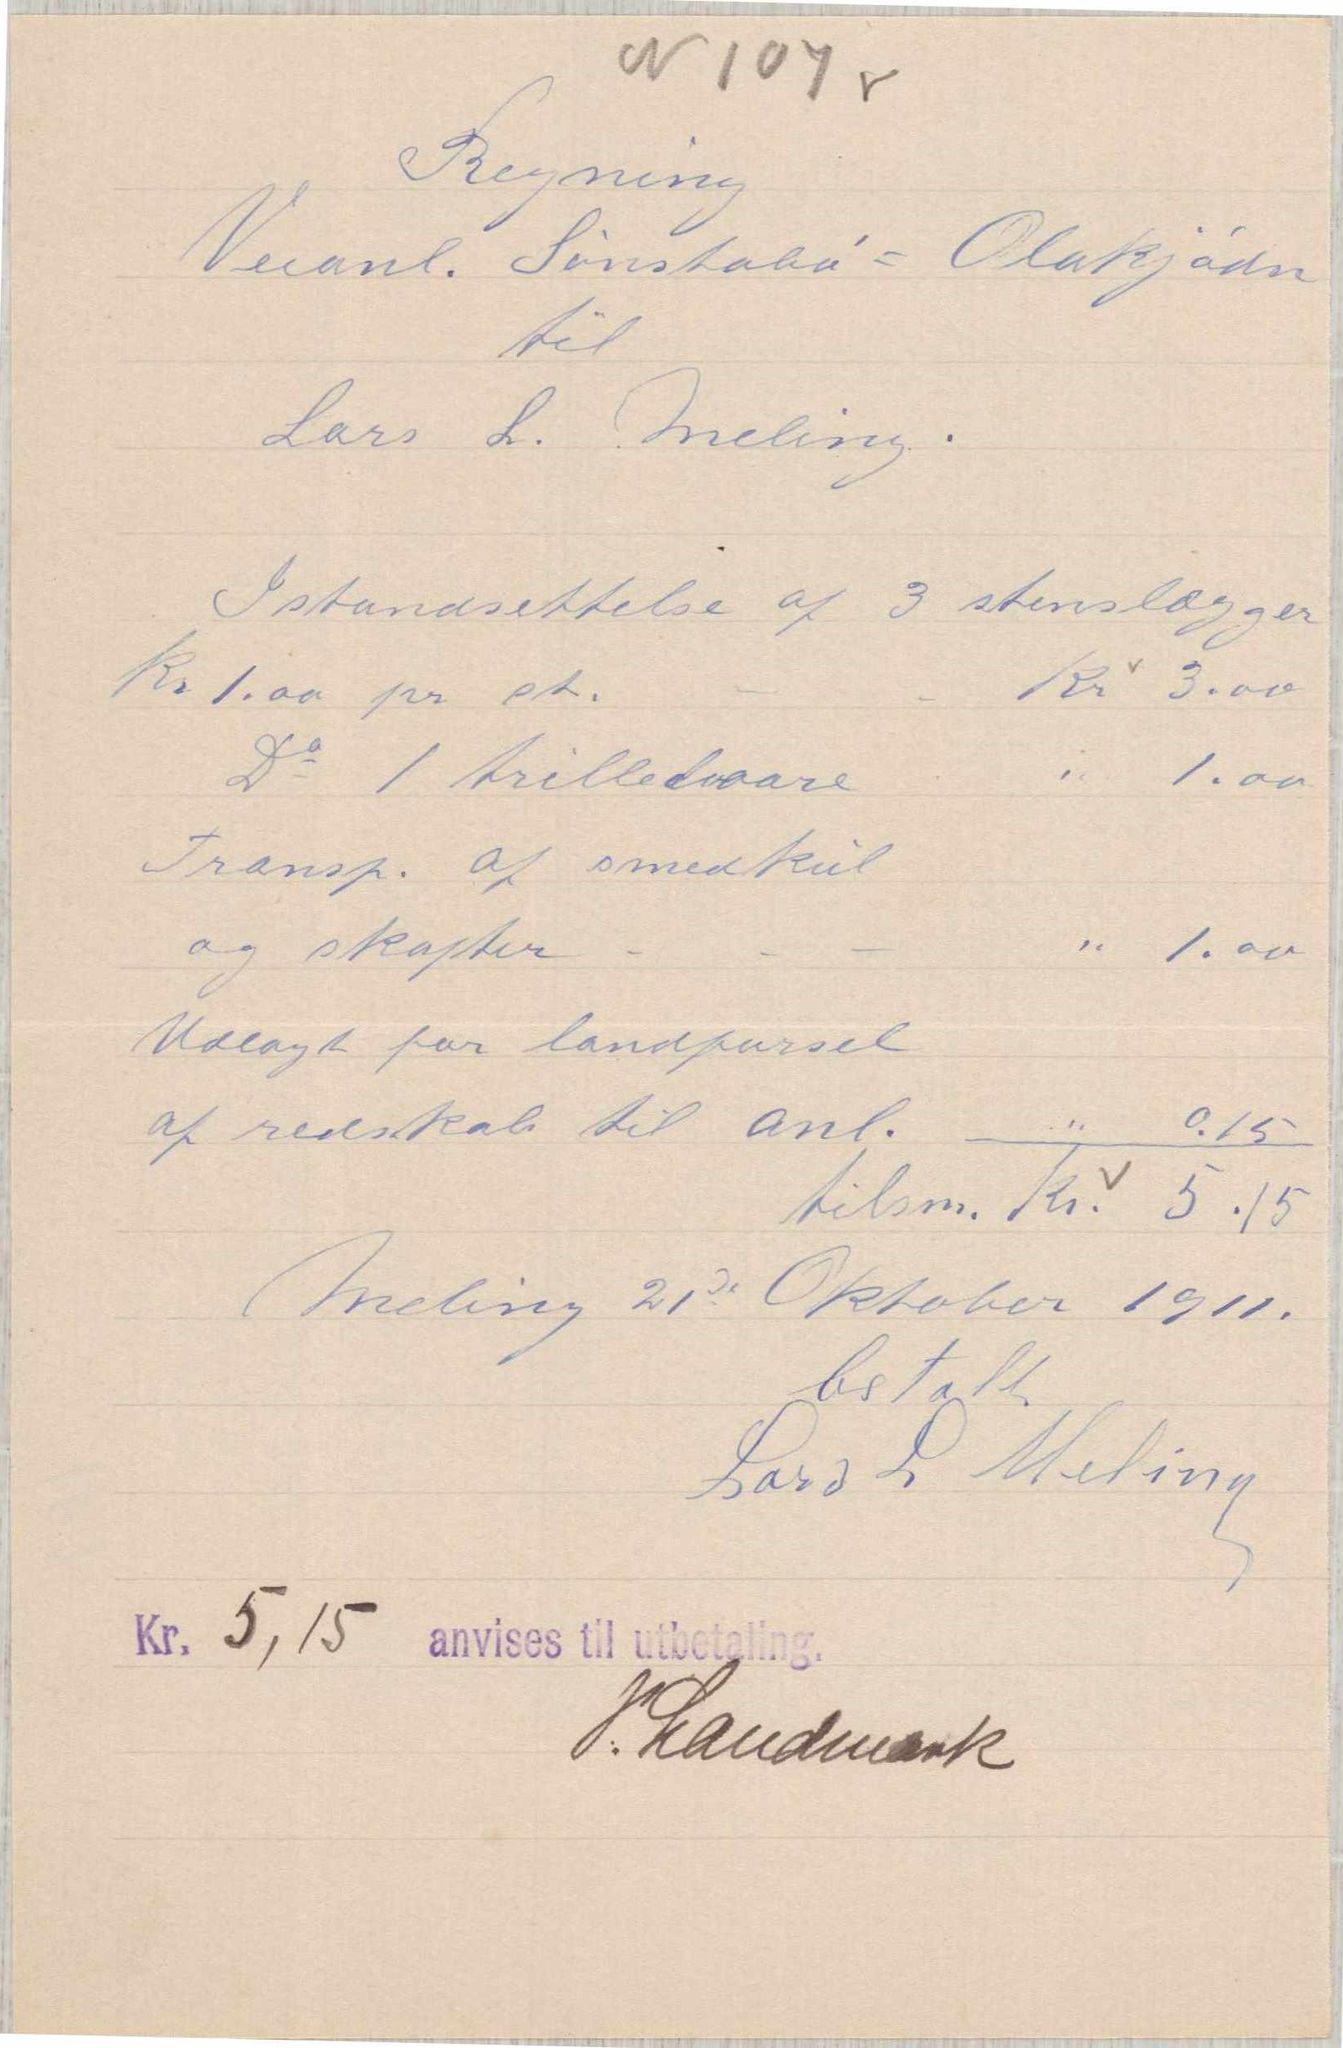 N 107
Regning
Veianl. Sönstabö = Olakjödn
til
Lars L. Meling.
Istandsettelse af 3 stenslægger
Kr 1.00 pr st. - - Kr 3.00
Do 1 trillebaare " 1.00
Transp. af smedkul
og skafter - - - " 1.00
Udlagt for landforsel
af redskab til anl. " 0.15
tilsm. Kr. 5.15
Meling 21de Oktober 1911.
betalt
Lars L Meling
Kr. 5,15 anvises til utbetaling.
Landmark